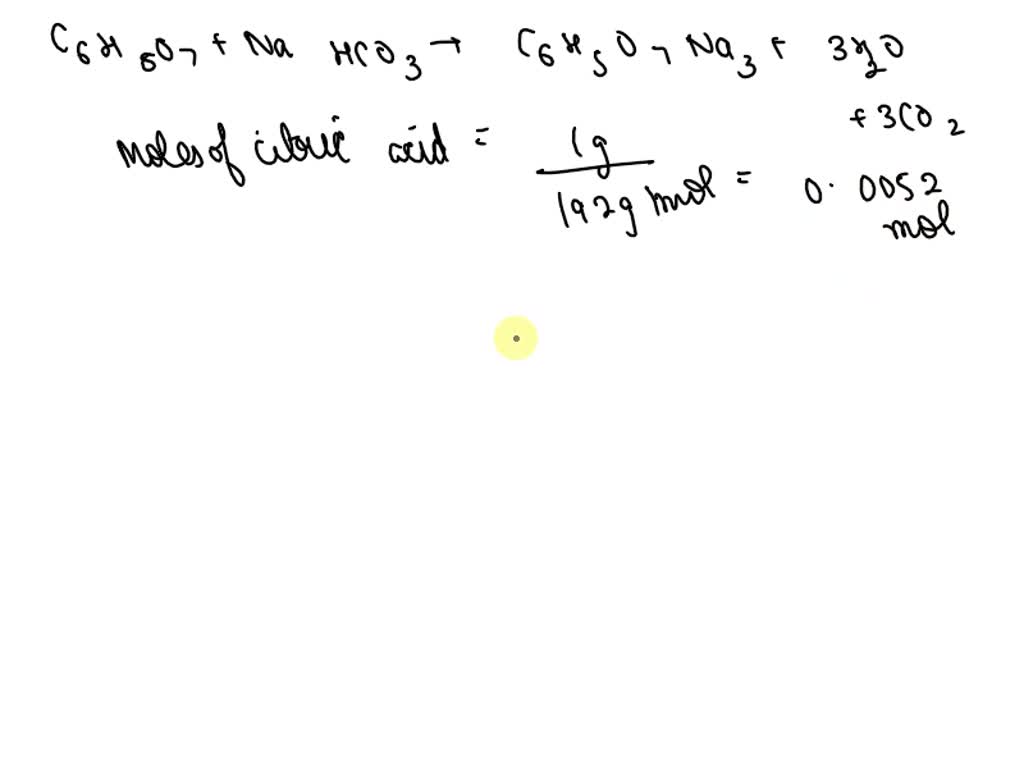 C6H8O7 + Na HCO3 → C6H5O7Na3 + 3H2O
+ 3CO2
moles of citric acid = 1g / 192g mol = 0.0052
mol